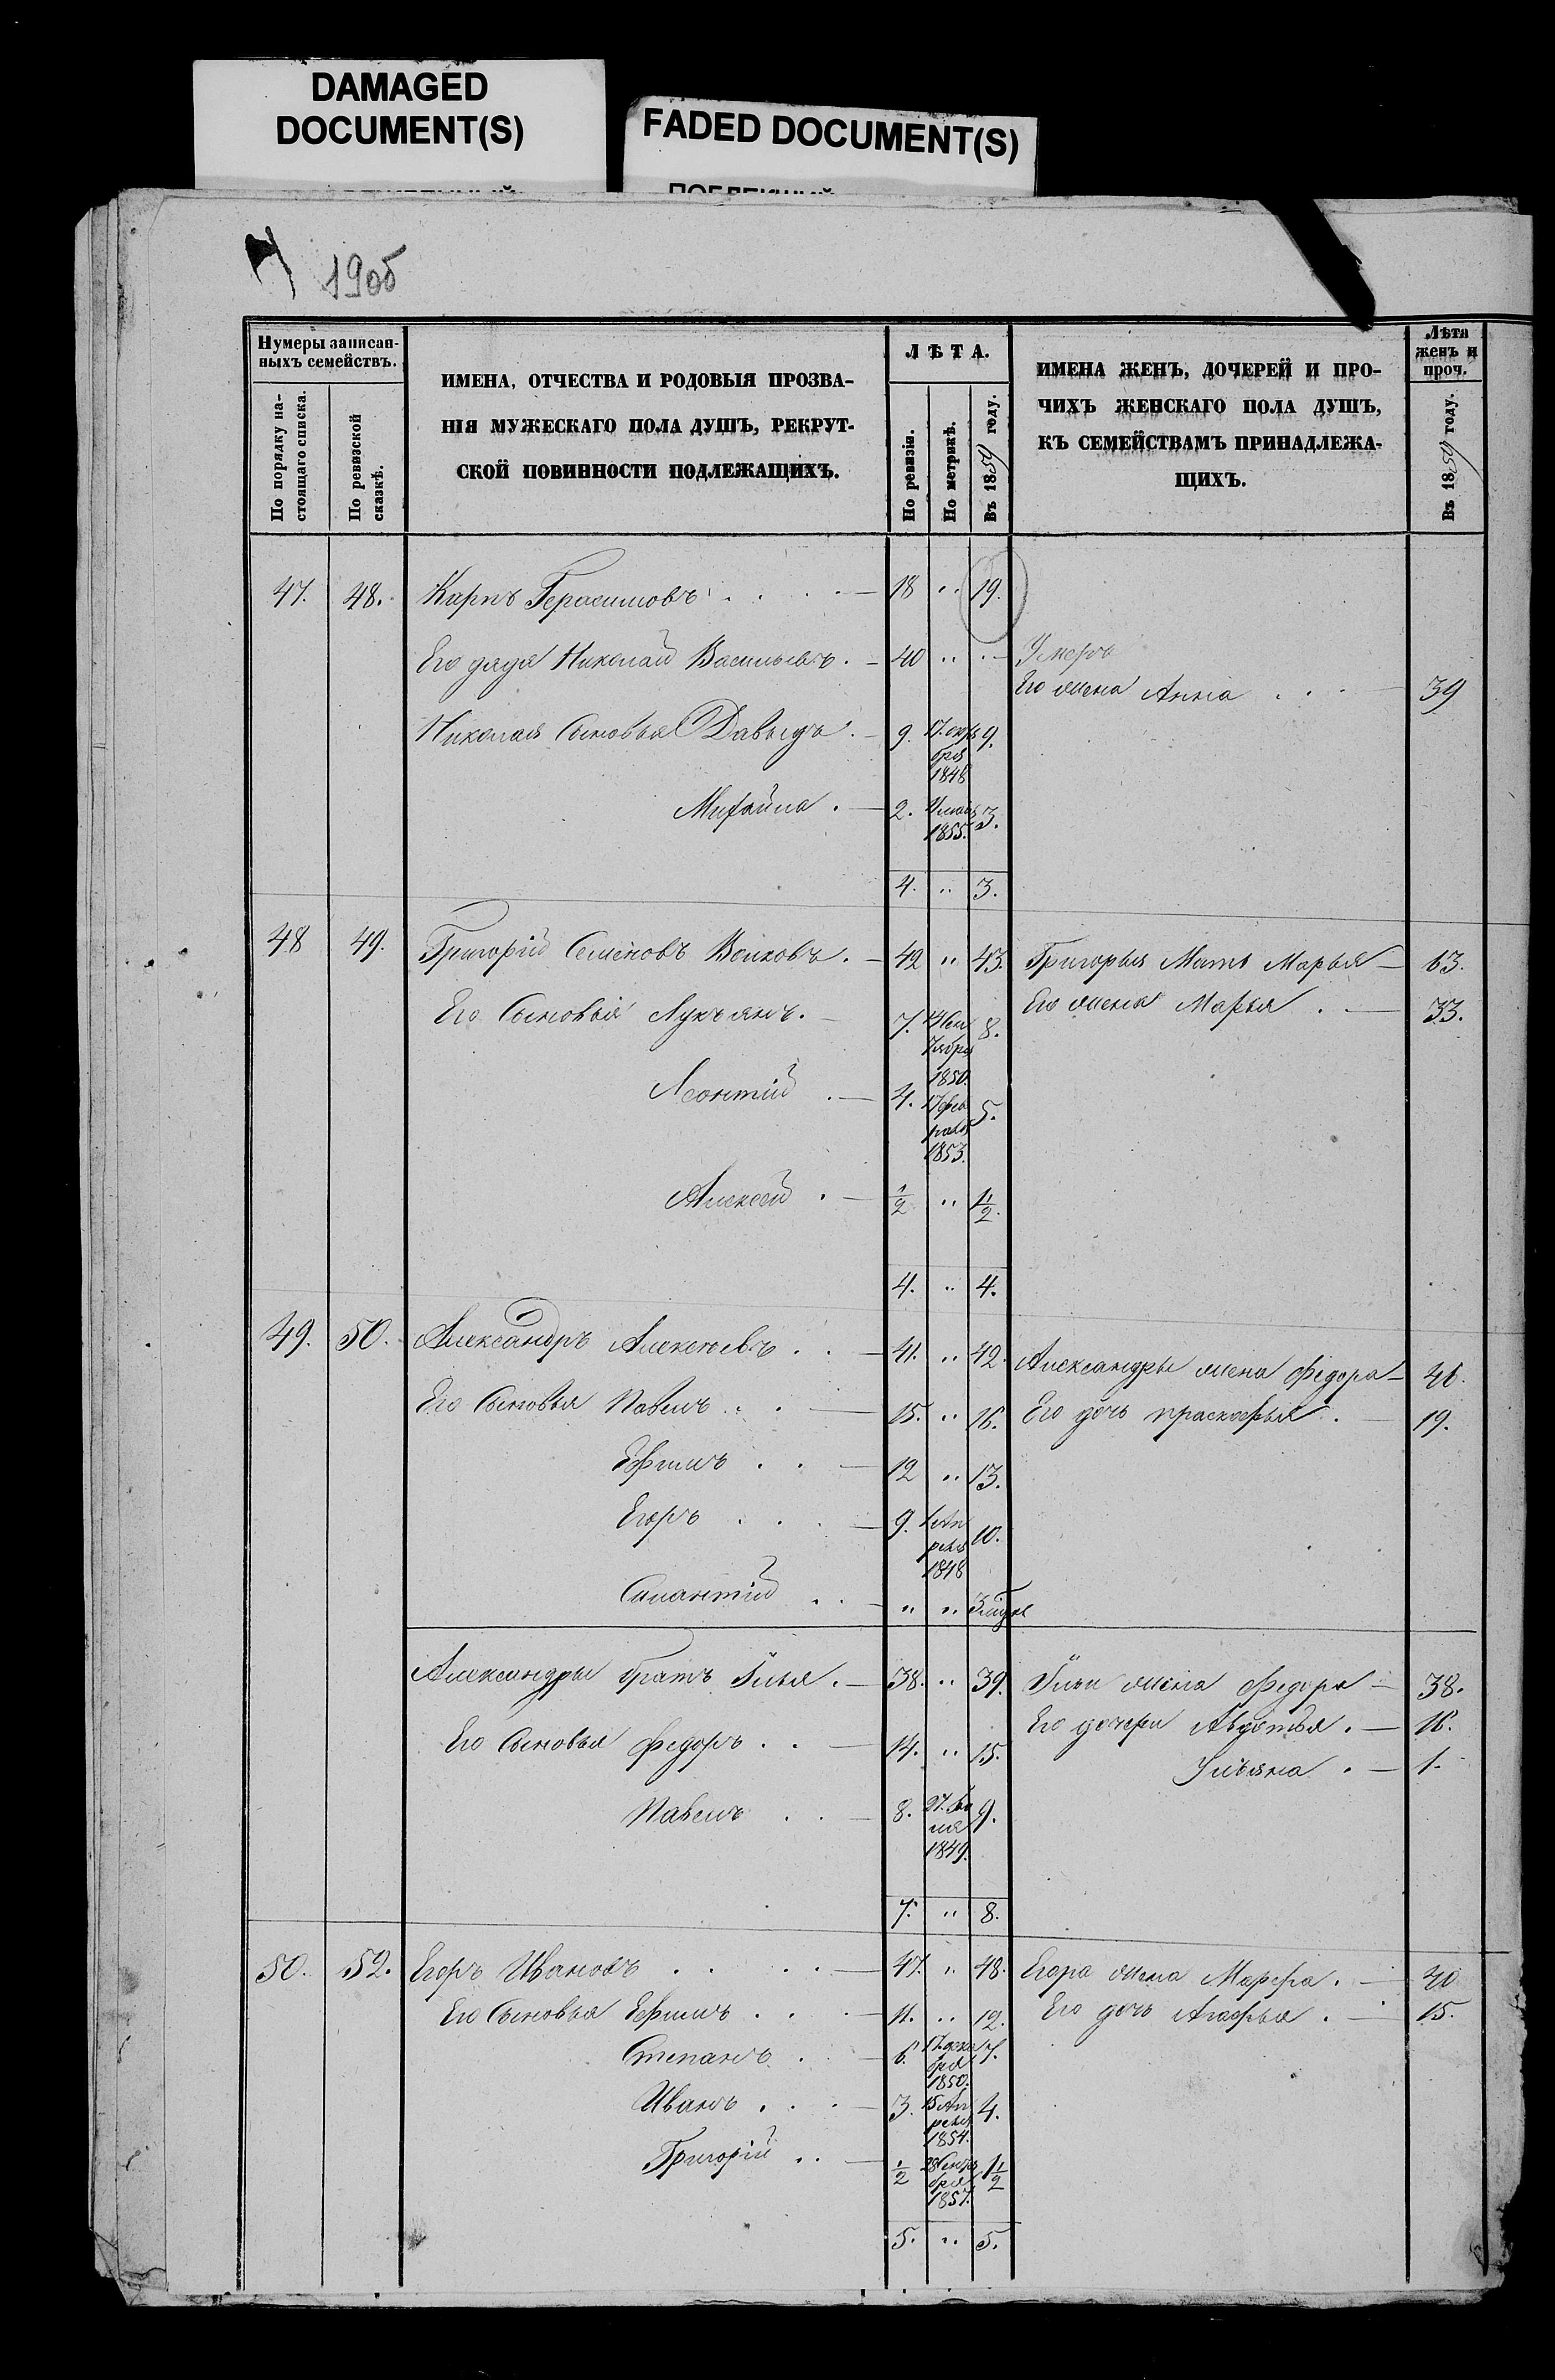 DAMAGED
DOCUMENT(S)
FADED DOCUMENT(S)
190об
Нумеры записан-
ныхъ семействъ.
По порядку на-
стоящаго списка.
По ревизской
сказкѣ.
ИМЕНА, ОТЧЕСТВА И РОДОВЫЯ ПРОЗВА-
НІЯ МУЖЕСКАГО ПОЛА ДУШЪ, РЕКРУТ-
СКОЙ ПОВИННОСТИ ПОДЛЕЖАЩИХЪ.
ЛѢТА.
По ревизіи.
По метрикѣ.
Въ 1859 году.
ИМЕНА ЖЕНЪ, ДОЧЕРЕЙ И ПРО-
ЧИХЪ ЖЕНСКАГО ПОЛА ДУШЪ,
КЪ СЕМЕЙСТВАМЪ ПРИНАДЛЕЖА-
ЩИХЪ.
Лѣта
женъ и
проч.
Въ 1859 году.
47. 48. Карпъ Герасимовъ . . . . — 18 " 19.
Его дядя Николай Васильевъ. — 40 " " — Умеръ
Его жена Анна . . . — 39
Николая Сыновья Давыдъ . — 9. 17. октя 9.
бря
1848
Михайла . — 2. мая 3.
1855.
4. " 3.
48 49. Григорій Семеновъ Волковъ. — 42 " 43. Григорья Мать Марья — 63.
Его жена Марья . — 33.
Его Сыновья Лукъянъ. — 7. Сен 8.
тября
1850.
Леонтій . — 4. 17 фев 5.
раля
1853.
Алексей . — 1/2 " 1 1/2.
4. " 4.
49. 50. Александръ Алексѣевъ . . — 41. " 42. Александры жена Федора — 46.
Его Сыновья Павелъ . . — 15. " 16. Его дочь прасковья . — 19.
Ефимъ . . — 12 " 13.
Егоръ . . . — 9. Ап 10.
реля
1848
. . — " " 3
Александры братъ Илья . — 38. " 39. Ильи жена Федора — 38.
Его дочери Авдотья . — 16.
Его Сыновья Федоръ . . — 14. " 15.
Ульяна . — 1.
Павелъ . . — 8. 27. 9.
1849.
7. " 8.
50. 52. Егоръ Ивановъ . . . . — 47. " 48. Егора жена Марфа . — 40
Его Сыновья Ефимъ . . . — 11. " 12. Его дочь Агафья . — 15.
Степанъ . . — 6. 17. дека 7.
бря
1850.
Иванъ . . . — 3. 15 Ап 4.
реля
1854.
Григорій . . — 1/2 28 Сентя 1 1/2
бря
1857.
5. " 5.